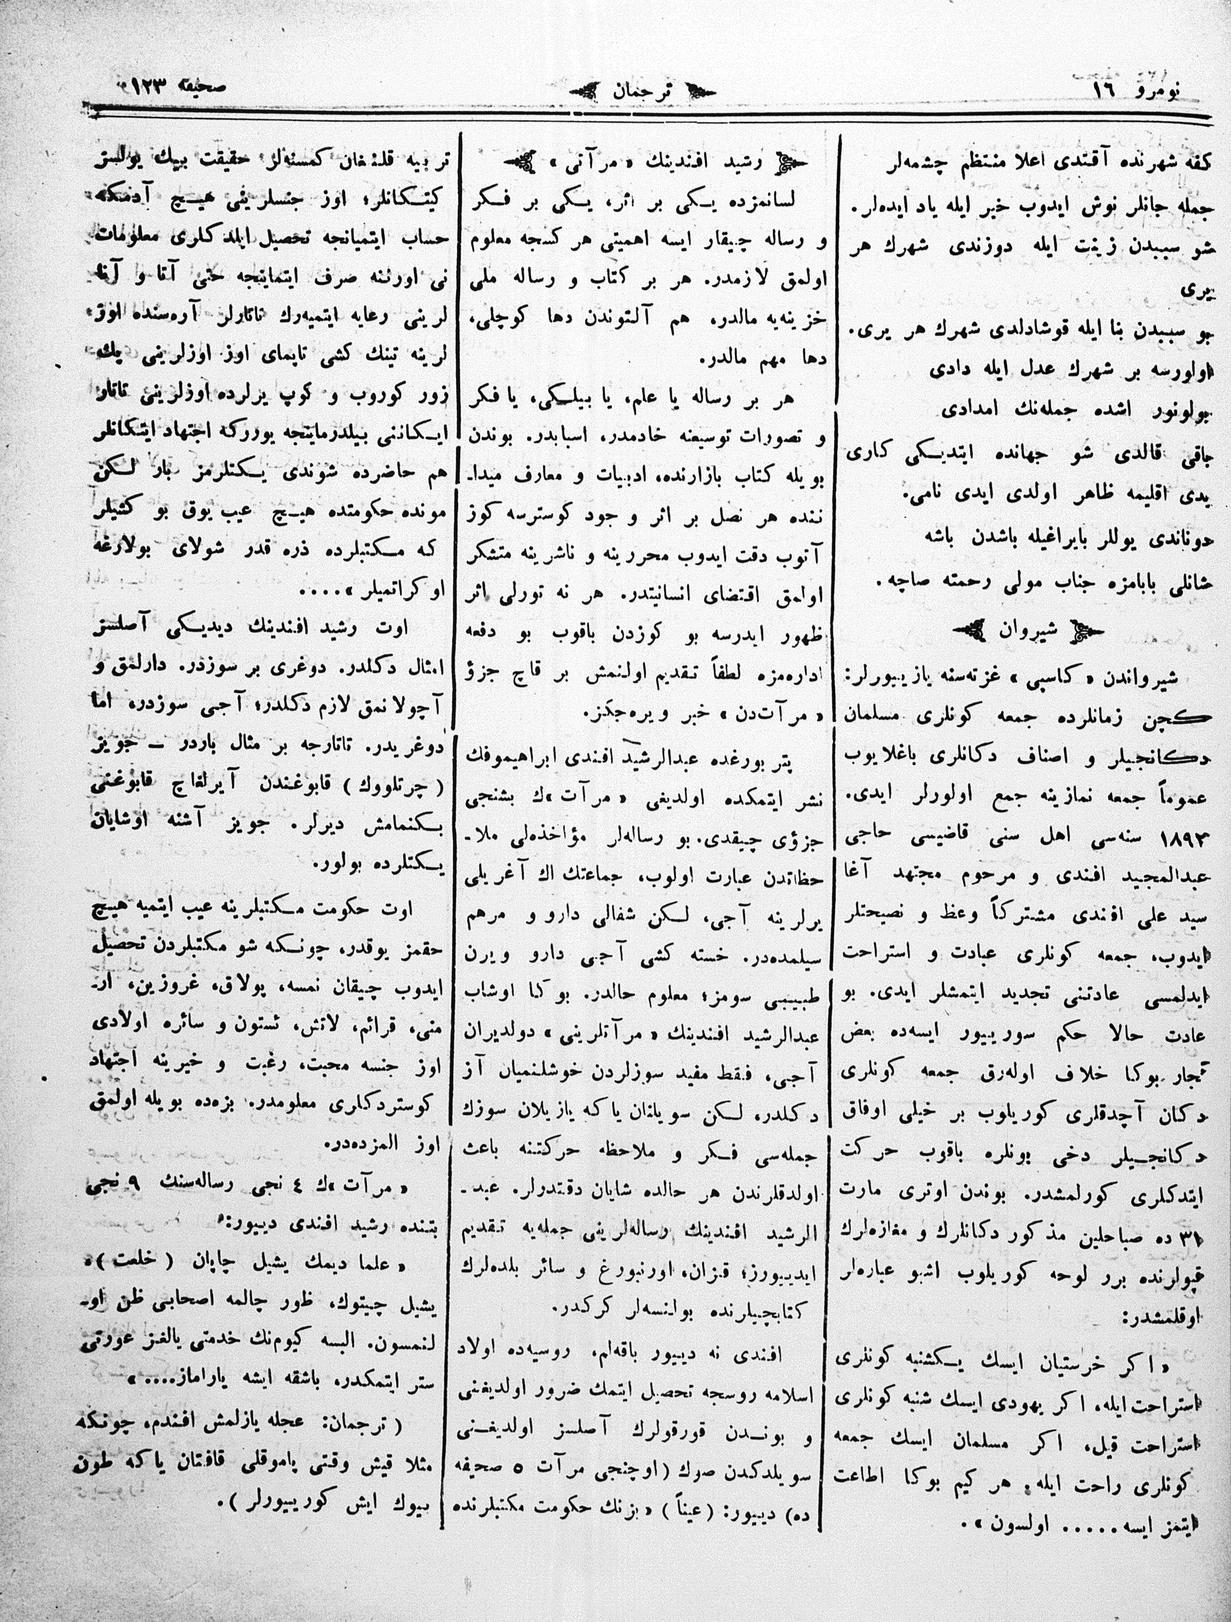 نومرو ١٦
ترجمان
صحیفه ١٢٣
كفه شهرنده آقتدی اعلا منتظم چشمه‌لر
جمله جانلر نوش ایدوب خیر ایله یاد ایده‌لر.
شو سببدن زینت ایله دوزندی شهرك هر
یری
بو سببدن بنا ایله قوشادلدی شهرك هر یری.
اولورسه بر شهرك عدل ایله دادی
بولونور اشده جمله‌نك امدادی
باقی قالدی شو جهانده ایتدیكی كاری
یدی اقلیمه ظاهر اولدی ایدی نامی.
دوناندی یوللر بایراغیله باشدن باشه
شانلی بابامزه جناب مولی رحمته صاچه.
شیروان
شیرواندن « كاسپی » غزته‌سنه یازییورلر:
كچن زمانلرده جمعه كونلری مسلمان
دكانجیلر و اصناف دكانلری باغلایوب
عموماً جمعه نمازینه جمع اولورلر ایدی.
١٨٩٣ سنه‌سی اهل سنی قاضیسی حاجی
عبدالمجید افندی و مرحوم مجتهد آغا
سید علی افندی مشتركاً وعظ و نصیحتلر
ایدوب، جمعه كونلری عبادت و استراحت
ایدلمسی عادتنی تجدید ایتمشلر ایدی. بو
عادت حالا حكم سورییور ایسه‌ده بعض
تجار بوكا خلاف اوله‌رق جمعه كونلری
دكان آچدقلری كوریلوب بر خیلی اوفاق
دكانجیلر دخی بونلره باقوب حركت
ایتدكلری كورلمشدر. بوندن اوتری مارت
٣١ ده صباحلین مذكور دكانلرك و مغازه‌لرك
قپولرنده برر لوحه كوریلوب اشبو عباره‌لر
اوقلمشدر:
« اكر خرستیان ایسك یكشنبه كونلری
استراحت ایله، اكر یهودی ایسك شنبه كونلری
استراحت قیل، اكر مسلمان ایسك جمعه
كونلری راحت ایله، هر كیم بوكا اطاعت
ایتمز ایسه..... اولسون ».
رشید افندینك « مرآتی »
لسانمزده یكی بر اثر، یكی بر فكر
و رساله چیقار ایسه اهمیتی هر كسجه معلوم
اولمق لازمدر. هر بر كتاب و رساله ملی
خزینه‌یه مالدر، هم آلتوندن دها كوچلی،
دها مهم مالدر.
هر بر رساله یا علم، یا بیلكی، یا فكر
و تصورات توسیعنه خادمدر، اسبابدر. بوندن
بویله كتاب بازارنده، ادبیات و معارف میدا-
ننده هر نصل بر اثر و جود كوسترسه كوز
آنوب دقت ایدوب محررینه و ناشرینه متشكر
اولمق اقتضای انسانیتدر. هر نه تورلی اثر
ظهور ایدرسه بو كوزدن باقوب بو دفعه
اداره‌مزه لطفاً تقدیم اولنمش بر قاچ جزؤ
« مرآت‌دن » خبر ویره‌جكز.
پتر بورغده عبدالرشید افندی ابراهیموفك
نشر ایتمكده اولدیغی « مرآت »ك بشنجی
جزؤی چیقدی. بو رساله‌لر مؤاخذه‌لی ملا-
حظاتدن عبارت اولوب، جماعتك اك آغریلی
یرلرینه آجی، لكن شفالی دارو و مرهم
سیلمده‌در. خسته كشی آجی دارو ویرن
طبیبی سومز؛ معلوم حالدر. بوكا اوشاب
عبدالرشید افندینك « مرآتلرینی » دولدیران
آجی، فقط مفید سوزلردن خوشلنمیان آز
دكلدر، لكن سویلنان یاكه یازیلان سوزك
جمله‌سی فكر و ملاحظه حركتنه باعث
اولدقلرندن هر حالده شایان دقتدرلر. عبد-
الرشید افندینك رساله‌لرینی جمله‌یه تقدیم
ایدییورز؛ قزان، اورنبورغ و سائر بلده‌لرك
كتابچیلرنده بولنسه‌لر كركدر.
افندی نه دییور باقه‌لم، روسیه‌ده اولاد
اسلامه روسجه تحصیل ایتمك ضرور اولدیغنی
و بوندن قورقولرك آصلسز اولدیغنی
سویلدكدن صوك (اوچنجی مرآت ٥ صحیفه
ده) دییور: (عیناً) « بزنك حكومت مكتبلرنده
تربیه قلنغان كمسنه‌لر حقیقت بیك یولسز
كیتكانلر؛ اوز جنسلرینی هیچ آدمكه
حساب ایتمیانجه تحصیل ایلدكلری معلومات
نی اورننه صرف ایتمایتجه حتی آتا و آنا
لرینی رعایه ایتمیه‌رك تاتارلر آره‌سنده اوز
لرینه تینك كشی تاپمای اوز اوزلرینی پك
زور كوروب و كوپ یرلرده اوزلرینی تاتار
ایكاننی بیلدرماینجه یورركه اجتهاد ایتكانلر
هم حاضرده شوندی یكتلرمز بار لكن
مونده حكومتده هیچ عیب یوق بو كشیلر
كه مكتبلرده ذره قدر شولای بولارغه
اوكراتمیلر »....
اوت رشید افندینك دیدیكی آصلسز
امثال دكلدر. دوغری بر سوزدر. دارلمق و
آچولانمق لازم دكلدر؛ آجی سوزدر، اما
دوغریدر. تاتارجه بر مثال باردر — جویز
( چرتلووك ) قابوغندن آیرلغاچ قابوغنی
بكنمامش دیرلر. جویز آشنه اوشایان
یكتلرده بولور.
اوت حكومت مكتبلرینه عیب ایتمیه هیچ
حقمز یوقدر، چونكه شو مكتبلردن تحصیل
ایدوب چیقان نمسه، پولاق، غروزین، ار-
منی، قرائم، لاتش، ئستون و سائره اولادی
اوز جنسه محبت، رغبت و خیرینه اجتهاد
كوستردكلری معلومدر. بزه‌ده بویله اولمق
اوز المزده‌در.
« مرآت »ك ٤ نجی رساله‌سنك ٩ نجی
بتنده رشید افندی دییور:
« علما دیمك یشیل چاپان ( خلعت )،
یشیل چیتوك، ظور چالمه اصحابی ظن او-
لنمسون. البسه كیوم‌نك خدمتی یالغز عورتی
ستر ایتمكدر، باشقه ایشه یاراماز.... »
( ترجمان: عجله یازلمش افندم، چونكه
مثلا قیش وقتی پاموقلی قافتان یاكه طون
بیوك ایش كورییورلر ).